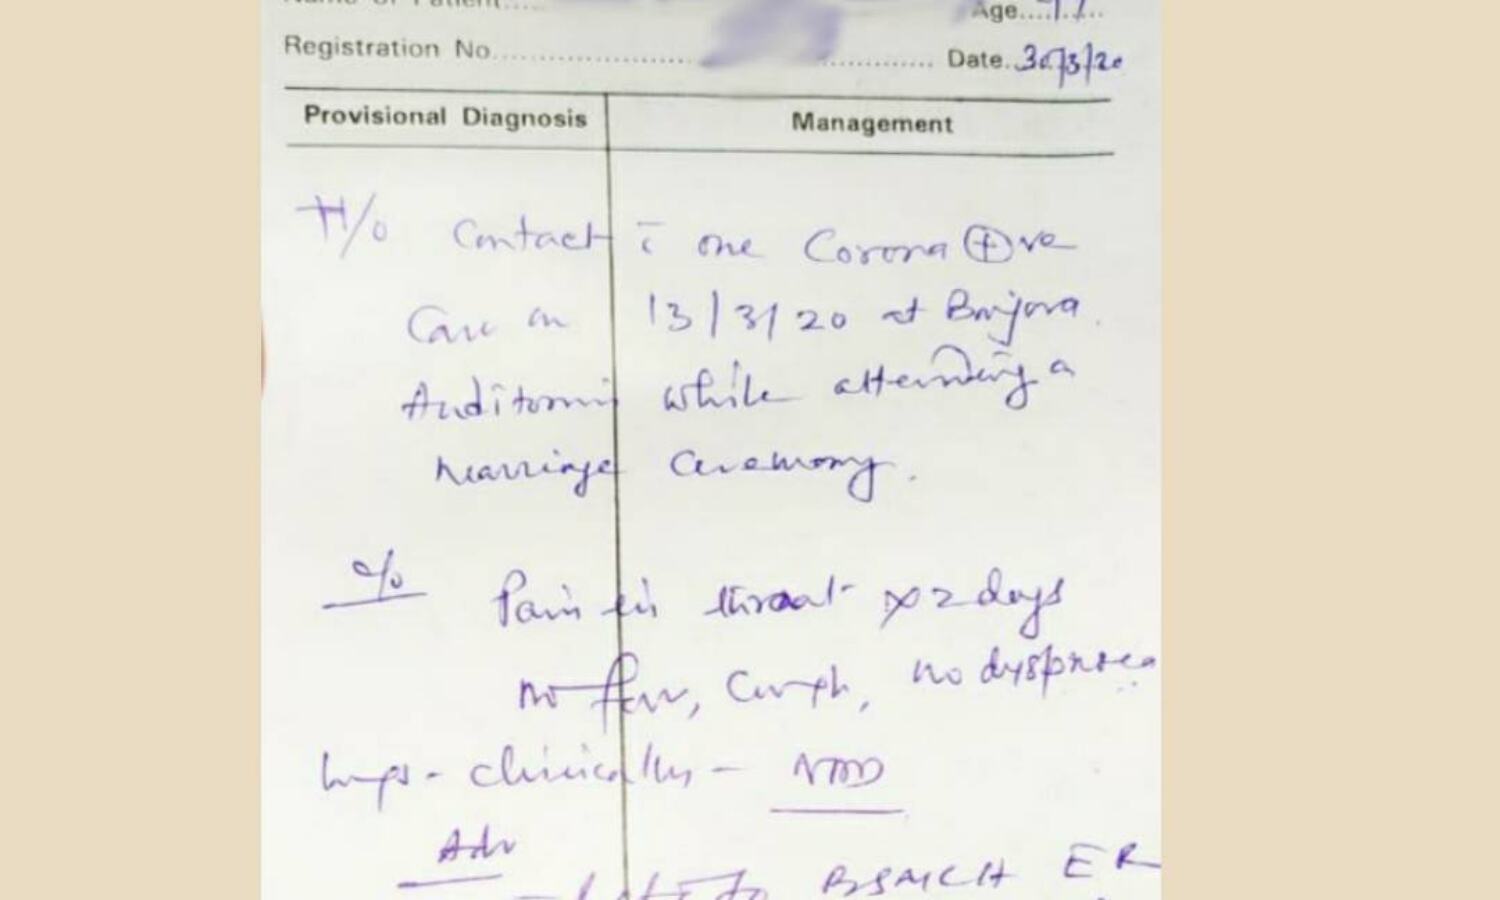 Name of Patient.....
Age....
Registration No.
Date..30/3/20
Provisional Diagnosis
Management
H/o Contact c̄ one Corona ⊕ve
Case on 13/3/20 at Barjora.
Auditorium while attending a
marriage ceremony.
c/o Pain in throat x 2 days
no fever, Cough, no dyspnoea
Lungs - clinically - NAD
Adv
to BSMCH ER